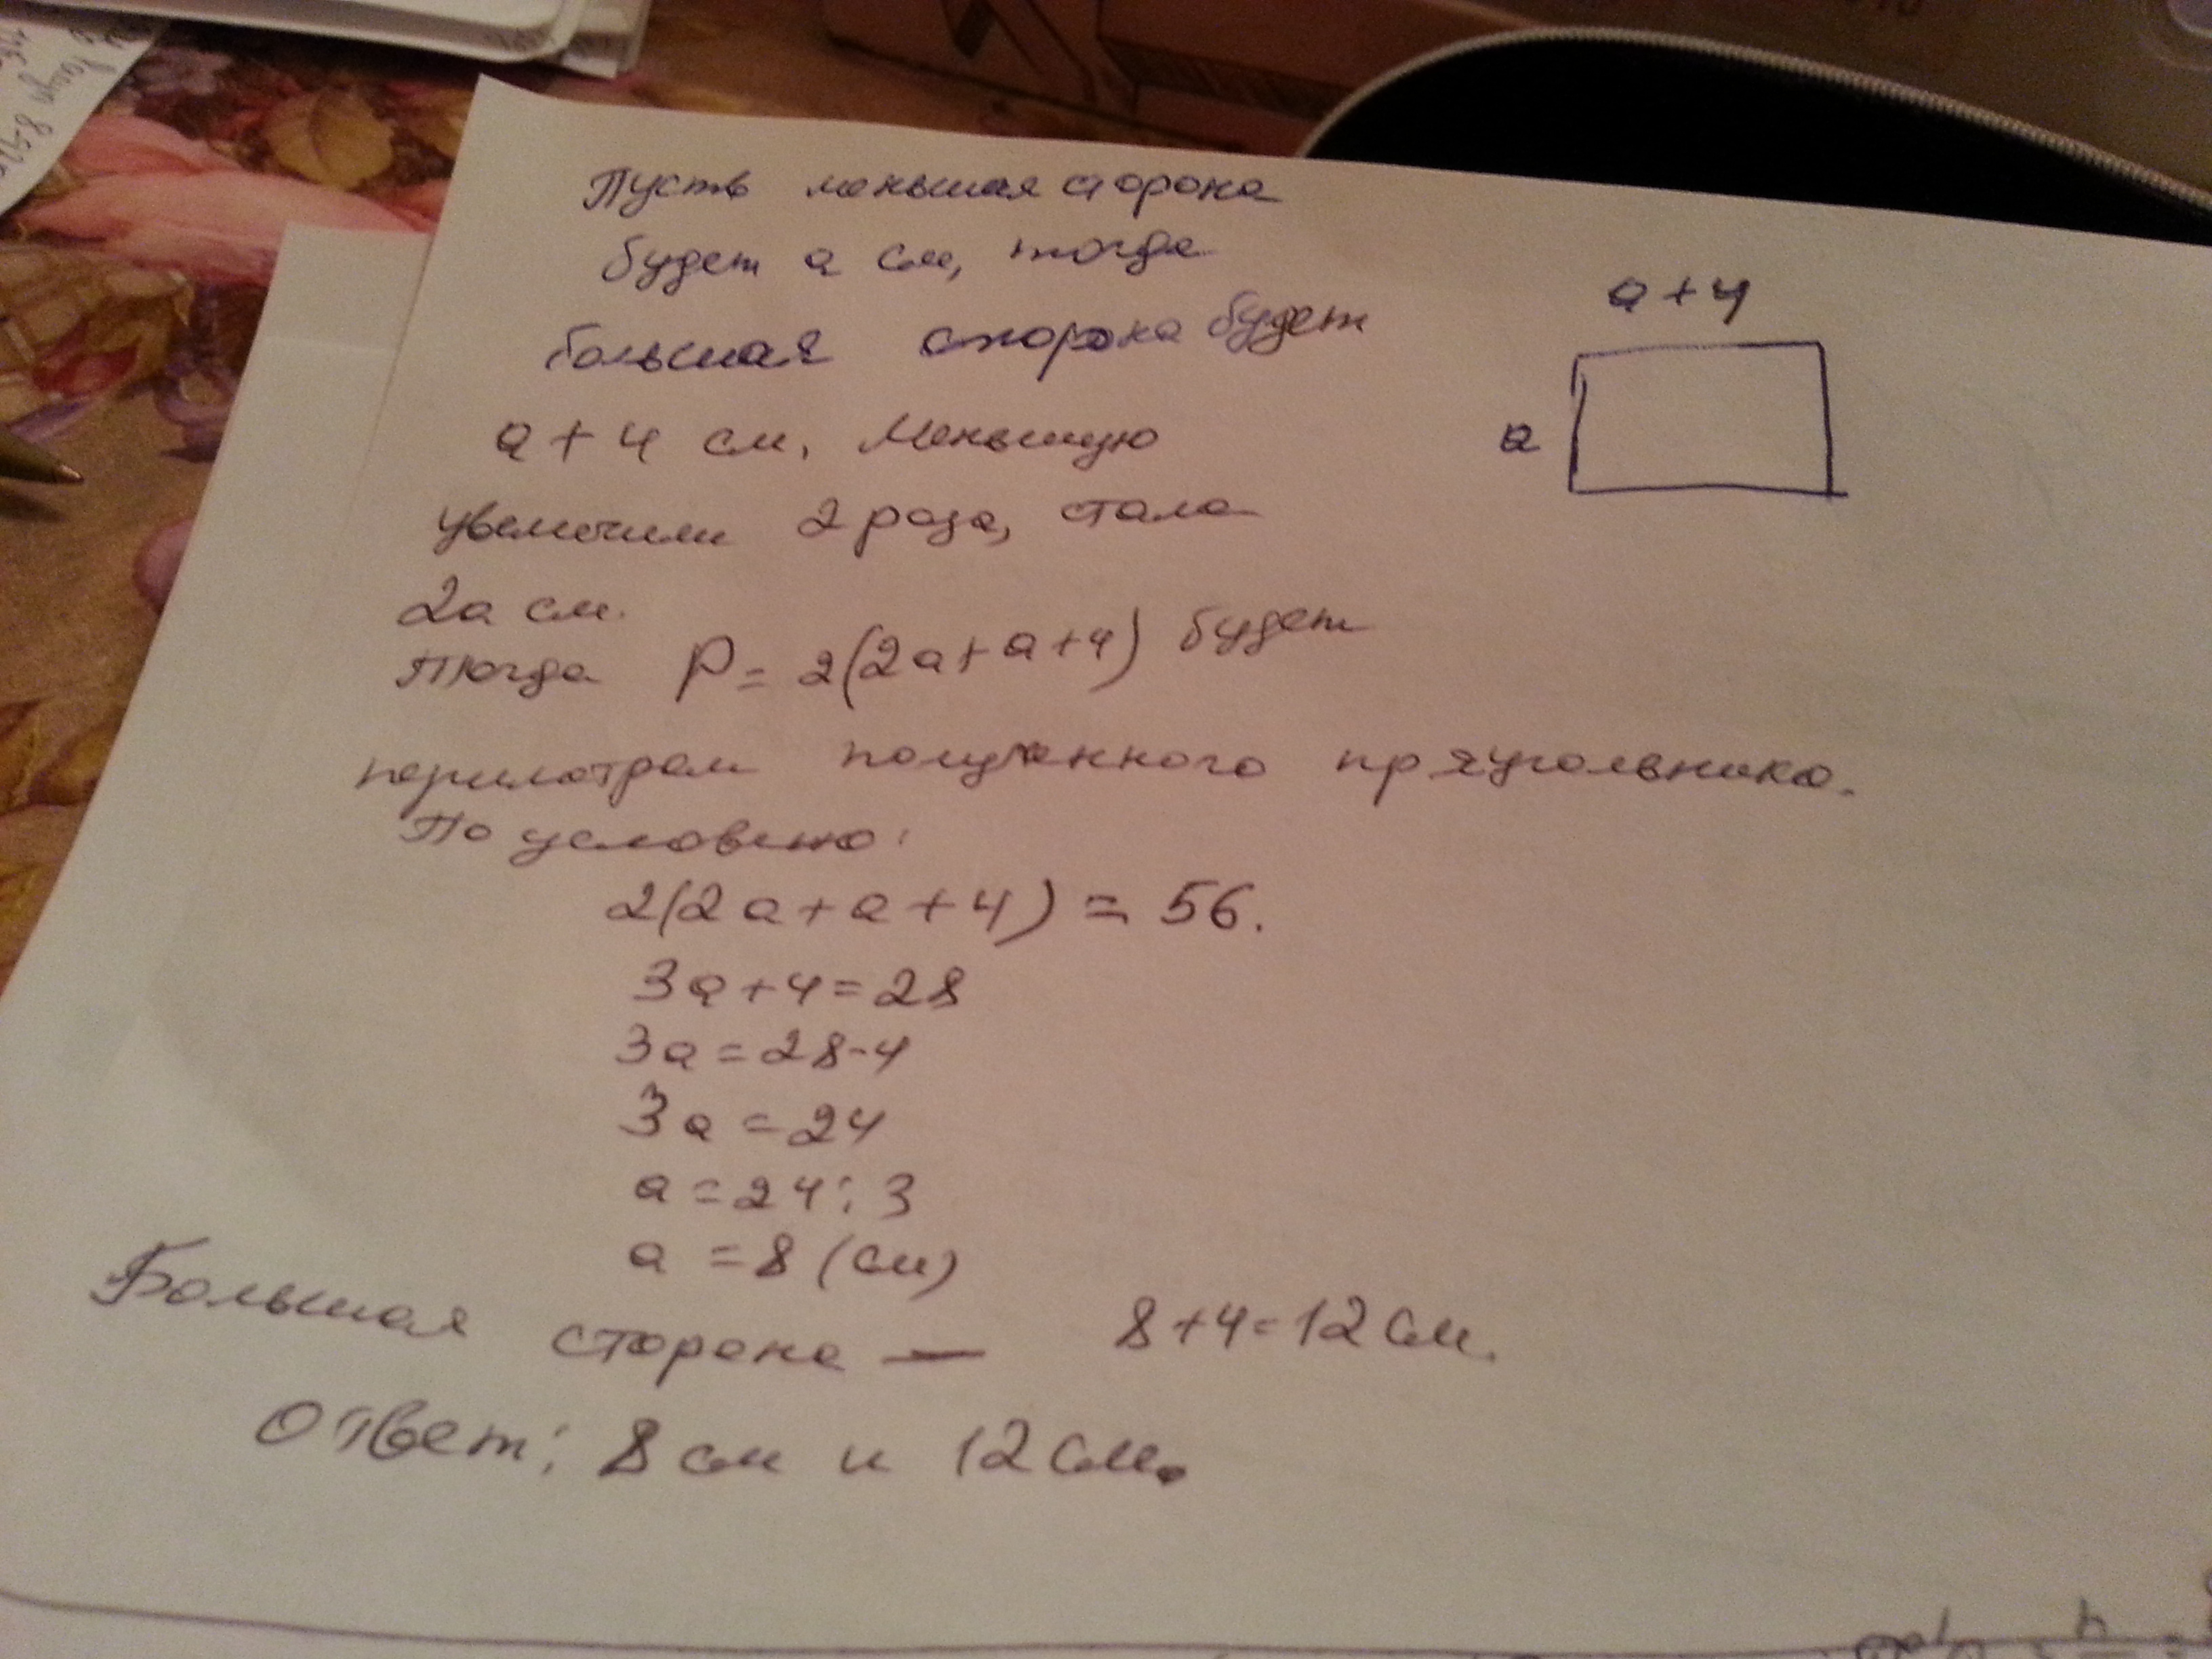 Пусть меньшая сторона
будет a см, тогда
большая сторона будет
a + 4 см. Меньшую
увеличили 2 раза, стала
2a см.
Тогда P = 2(2a + a + 4) будет
периметром полученного прямоугольника.
По условию:
2(2a + a + 4) = 56.
3a + 4 = 28
3a = 28 - 4
3a = 24
a = 24 : 3
a = 8 (см)
Большая сторона — 8 + 4 = 12 см.
Ответ: 8 см и 12 см.
a + 4
a